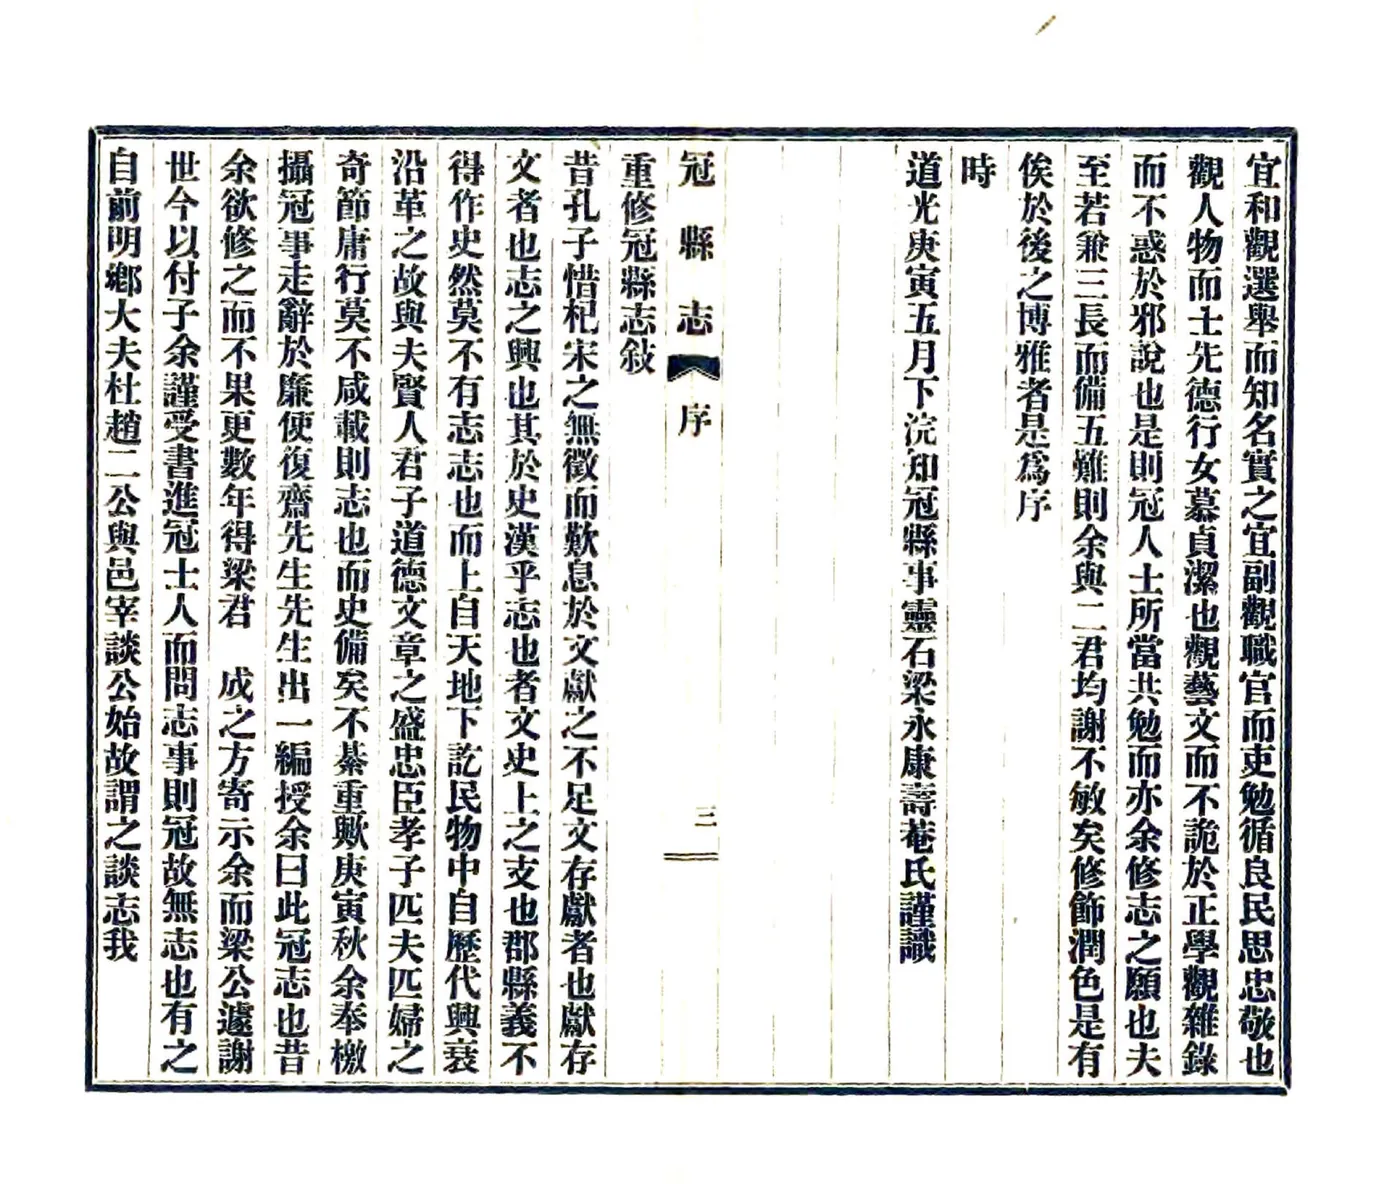 宜和觀選舉而知名實之宜副觀職官而吏勉循良民思忠敬也
觀人物而士先德行女慕貞潔也觀藝文而不詭於正學觀雜錄
而不惑於邪說也是則冠人士所當共勉而亦余修志之願也夫
至若兼三長而備五難則余與二君均謝不敏矣修飾潤色是有
俟於後之博雅者是爲序
時
道光庚寅五月下浣知冠縣事靈石梁永康壽菴氏謹識
冠縣志 序 三
重修冠縣志敍
昔孔子惜杞宋之無徵而歎息於文獻之不足文存獻者也獻存
文者也志之興也其於史漢乎志也者文史上之支也郡縣義不
得作史然莫不有志志也而上自天地下訖民物中自歷代興衰
沿革之故與夫賢人君子道德文章之盛忠臣孝子匹夫匹婦之
奇節庸行莫不咸載則志也而史備矣不綦重歟庚寅秋余奉檄
攝冠事走辭於廉使復齋先生先生出一編授余曰此冠志也昔
余欲修之而不果更數年得梁君 成之方寄示余而梁公遽謝
世今以付子余謹受書進冠士人而問志事則冠故無志也有之
自前明鄉大夫杜趙二公與邑宰談公始故謂之談志我